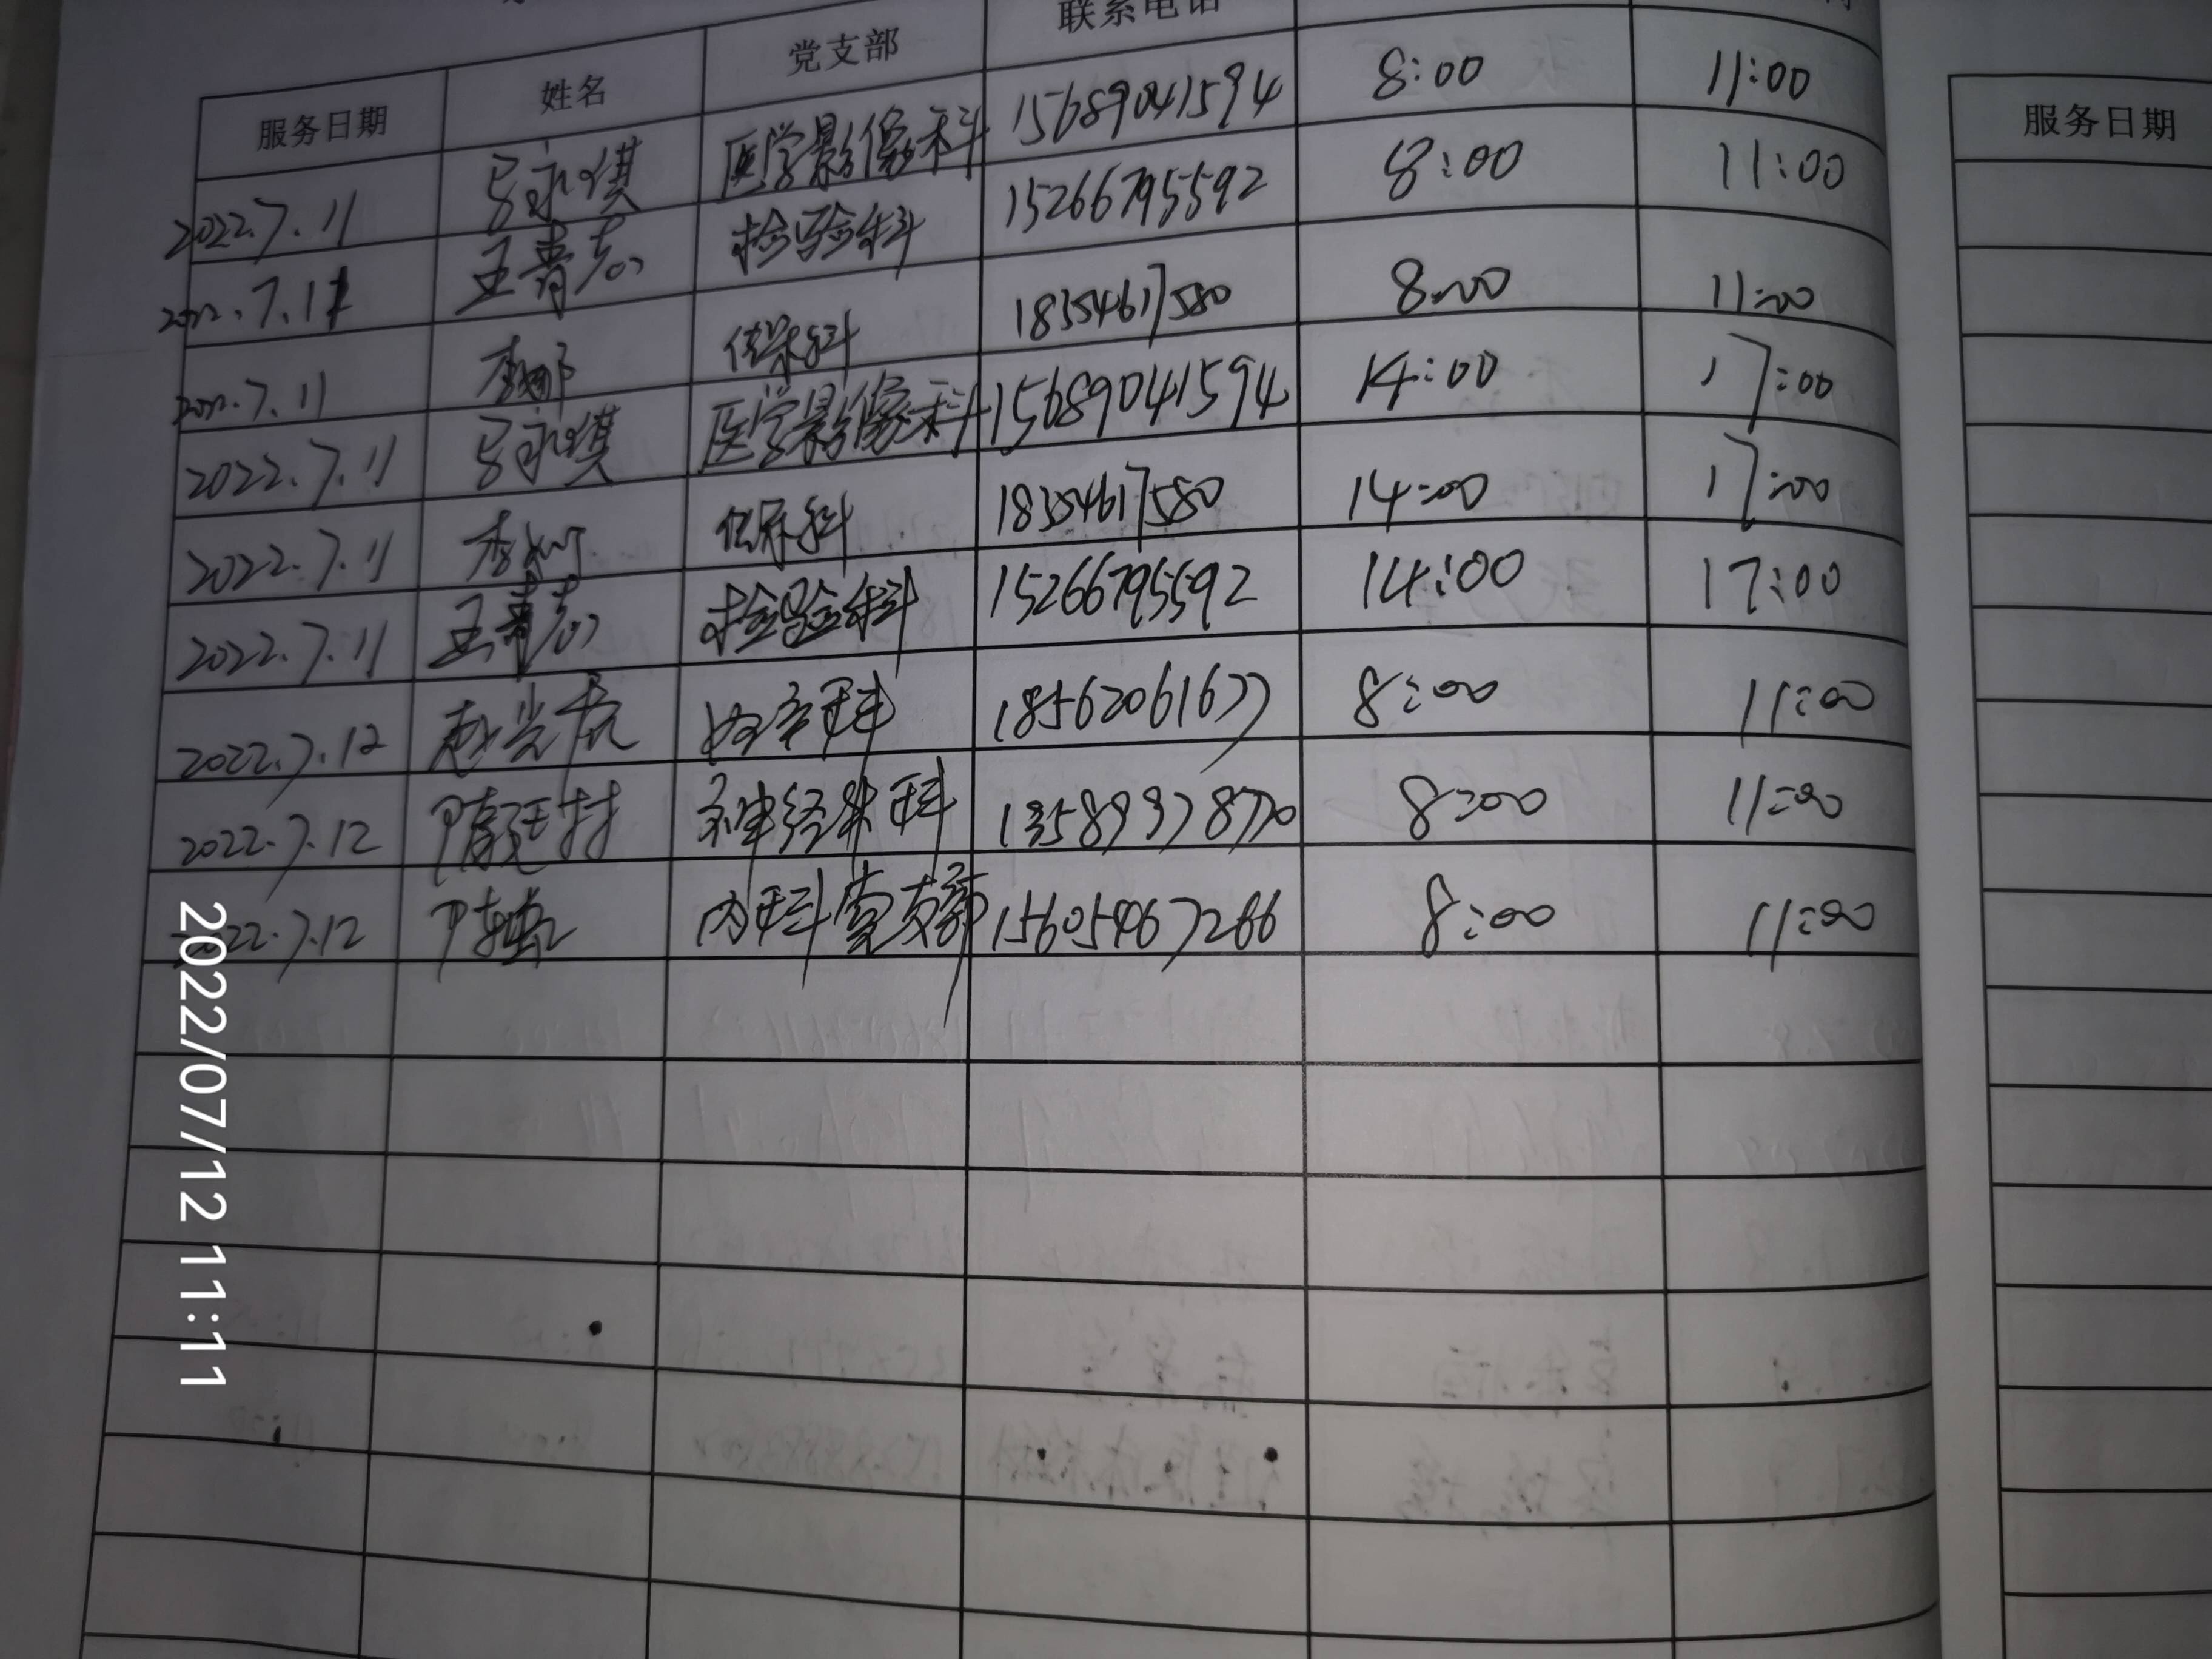 服务日期 姓名 党支部 联系电话
2022.7.11 马永琪 医学影像科 15689041594 8:00 11:00
2022.7.11 王青志 检验科 15266795592 8:00 11:00
2022.7.11 李娜 保科 18354617580 8:00 11:00
2022.7.11 马永琪 医学影像科 15689041594 14:00 17:00
2022.7.11 李 保科 18354617580 14:00 17:00
2022.7.11 王青志 检验科 15266795592 14:00 17:00
2022.7.12 赵光 科 18562061677 8:00 11:00
2022.7.12 隋廷村 神经外科 8:00 11:00
2022.7.12 内科党支部 15605467266 8:00 11:00
服务日期
2022/07/12 11:11